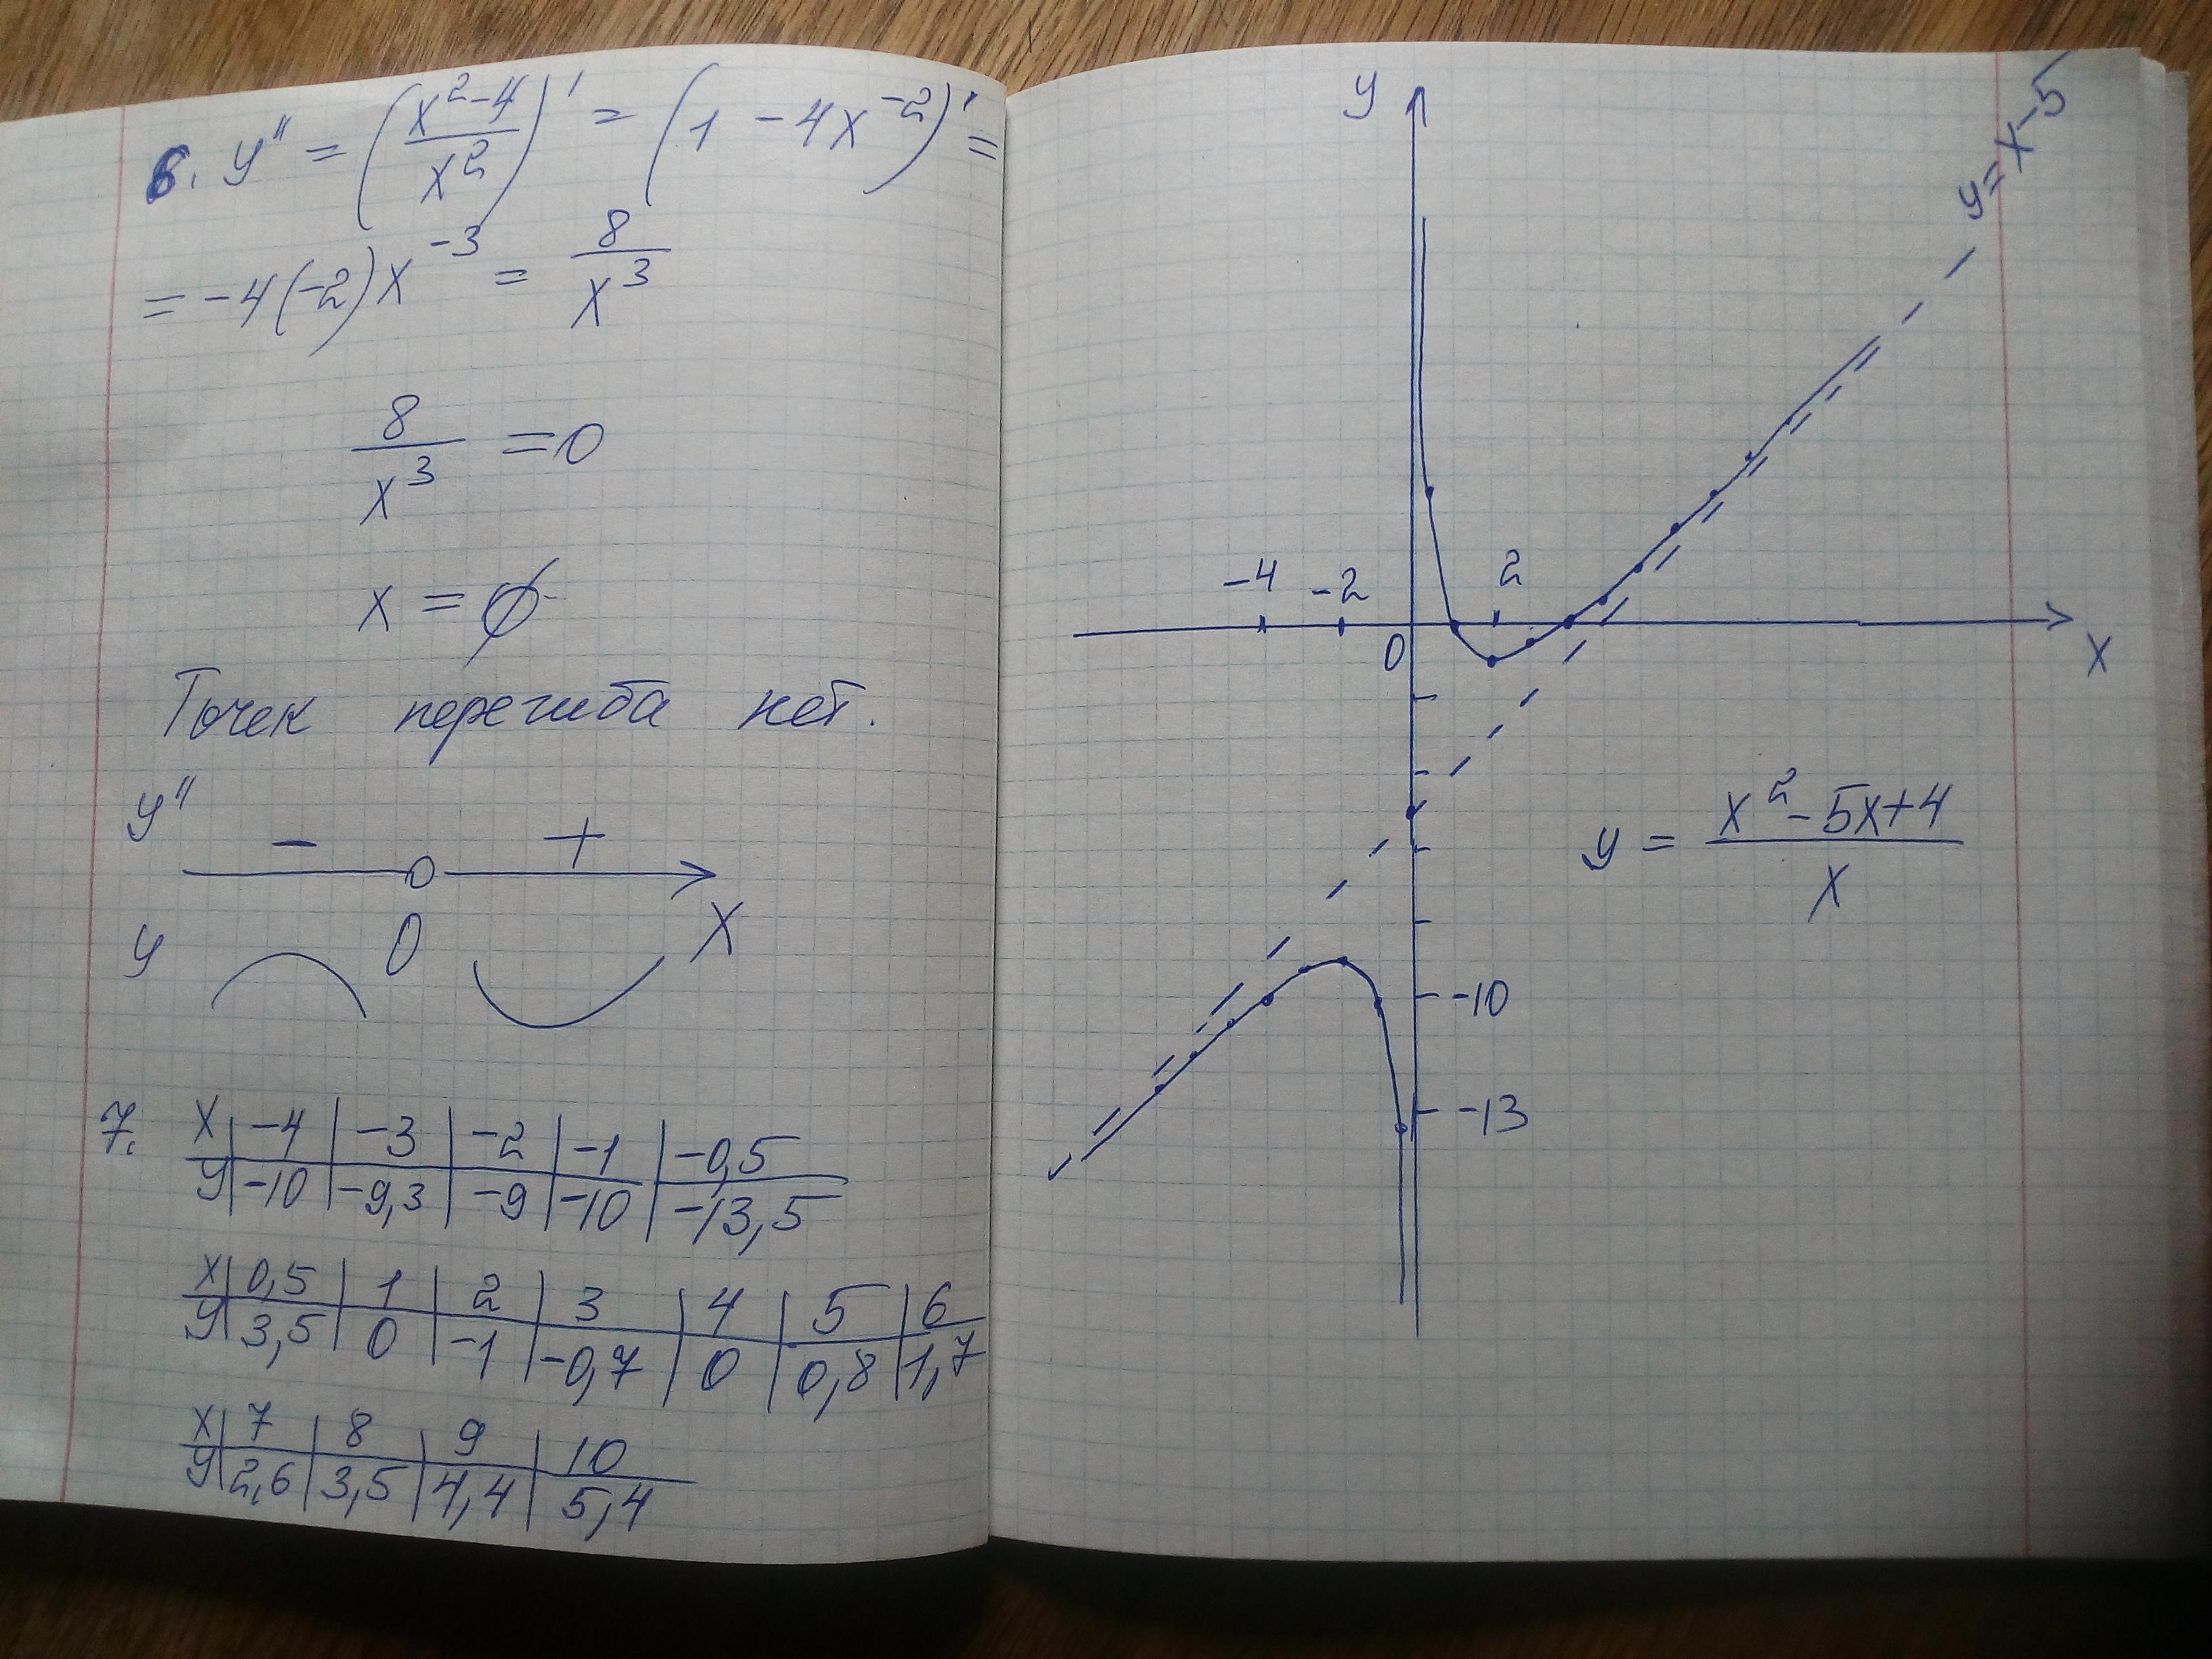 6. y'' = (x²-4 / x²)' = (1 - 4x⁻²)' =
= -4(-2)x⁻³ = 8/x³
8/x³ = 0
x = ∅
Точек перегиба нет.
y'' - +
0 x
y
7. x | -4 | -3 | -2 | -1 | -0,5
y | -10 | -9,3 | -9 | -10 | -13,5
x | 0,5 | 1 | 2 | 3 | 4 | 5 | 6
y | 3,5 | 0 | -1 | -0,7 | 0 | 0,8 | 1,7
x | 7 | 8 | 9 | 10
y | 2,6 | 3,5 | 4,4 | 5,4
y
y=x-5
-4 -2 2
0 x
y = x²-5x+4 / x
-10
-13